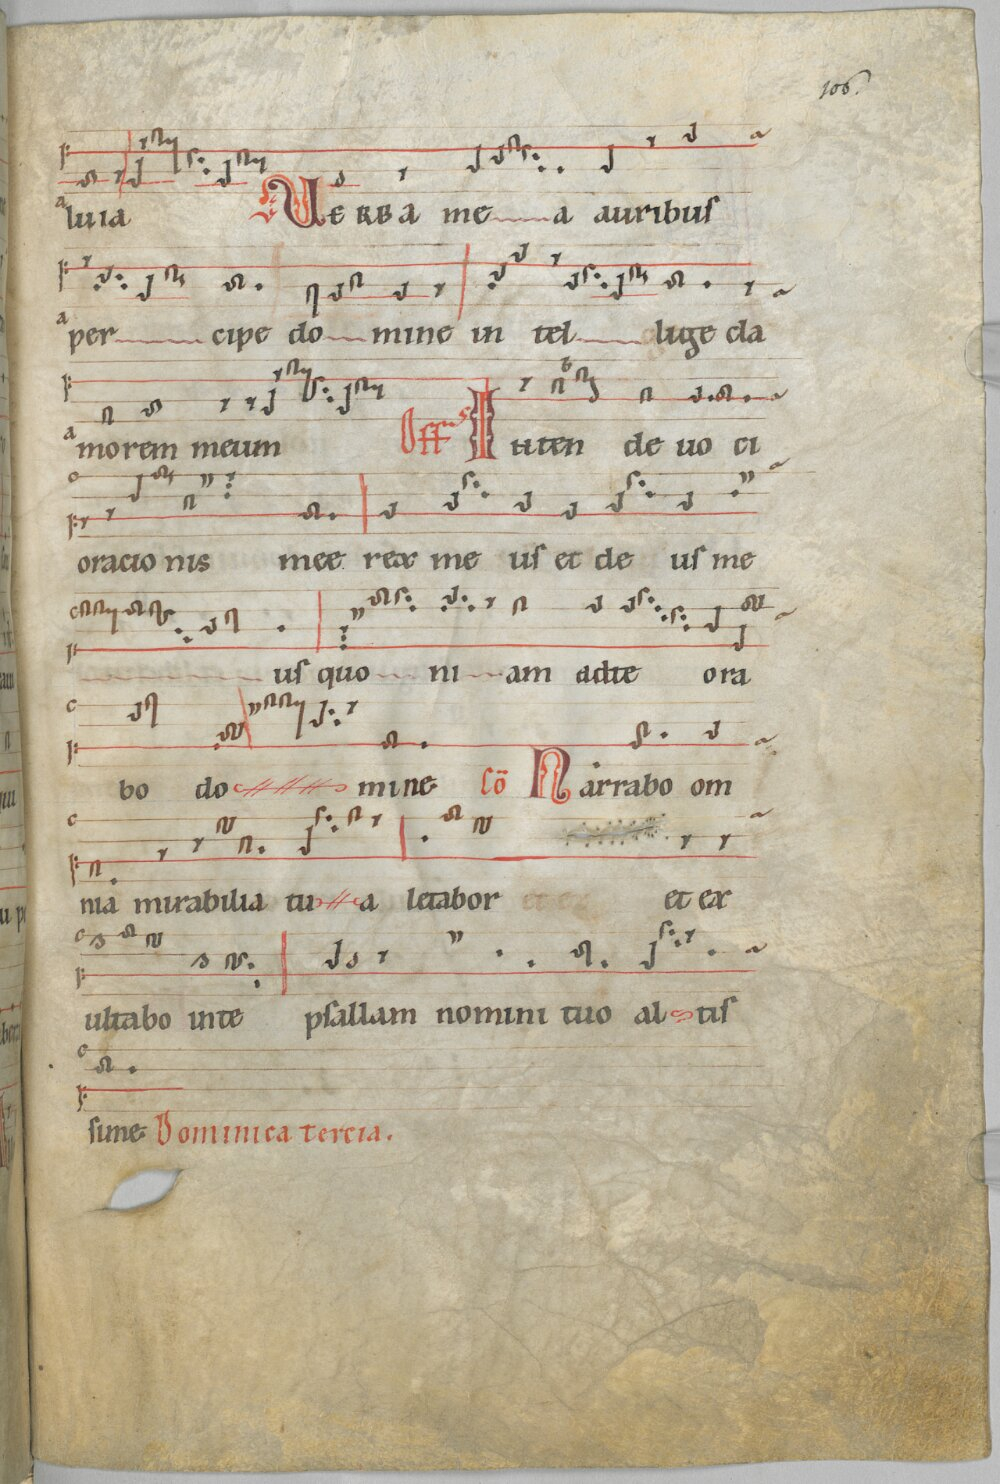 106.
luia VERBA me a auribus
per cipe do mine in tel lige cla
morem meum Off INten de uo ci
oracio nis mee rex me us et de us me
us quo ni am adte ora
bo do mine Cō Narrabo om
nia mirabilia tu a letabor et ex
ultabo inte psallam nomini tuo al tis
sime Dominica tercia.